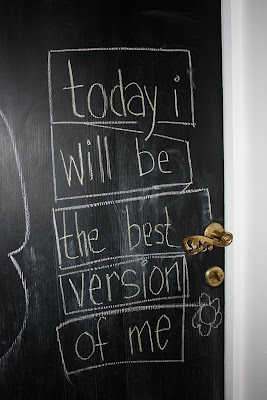 today i
will be
the best
version
of me